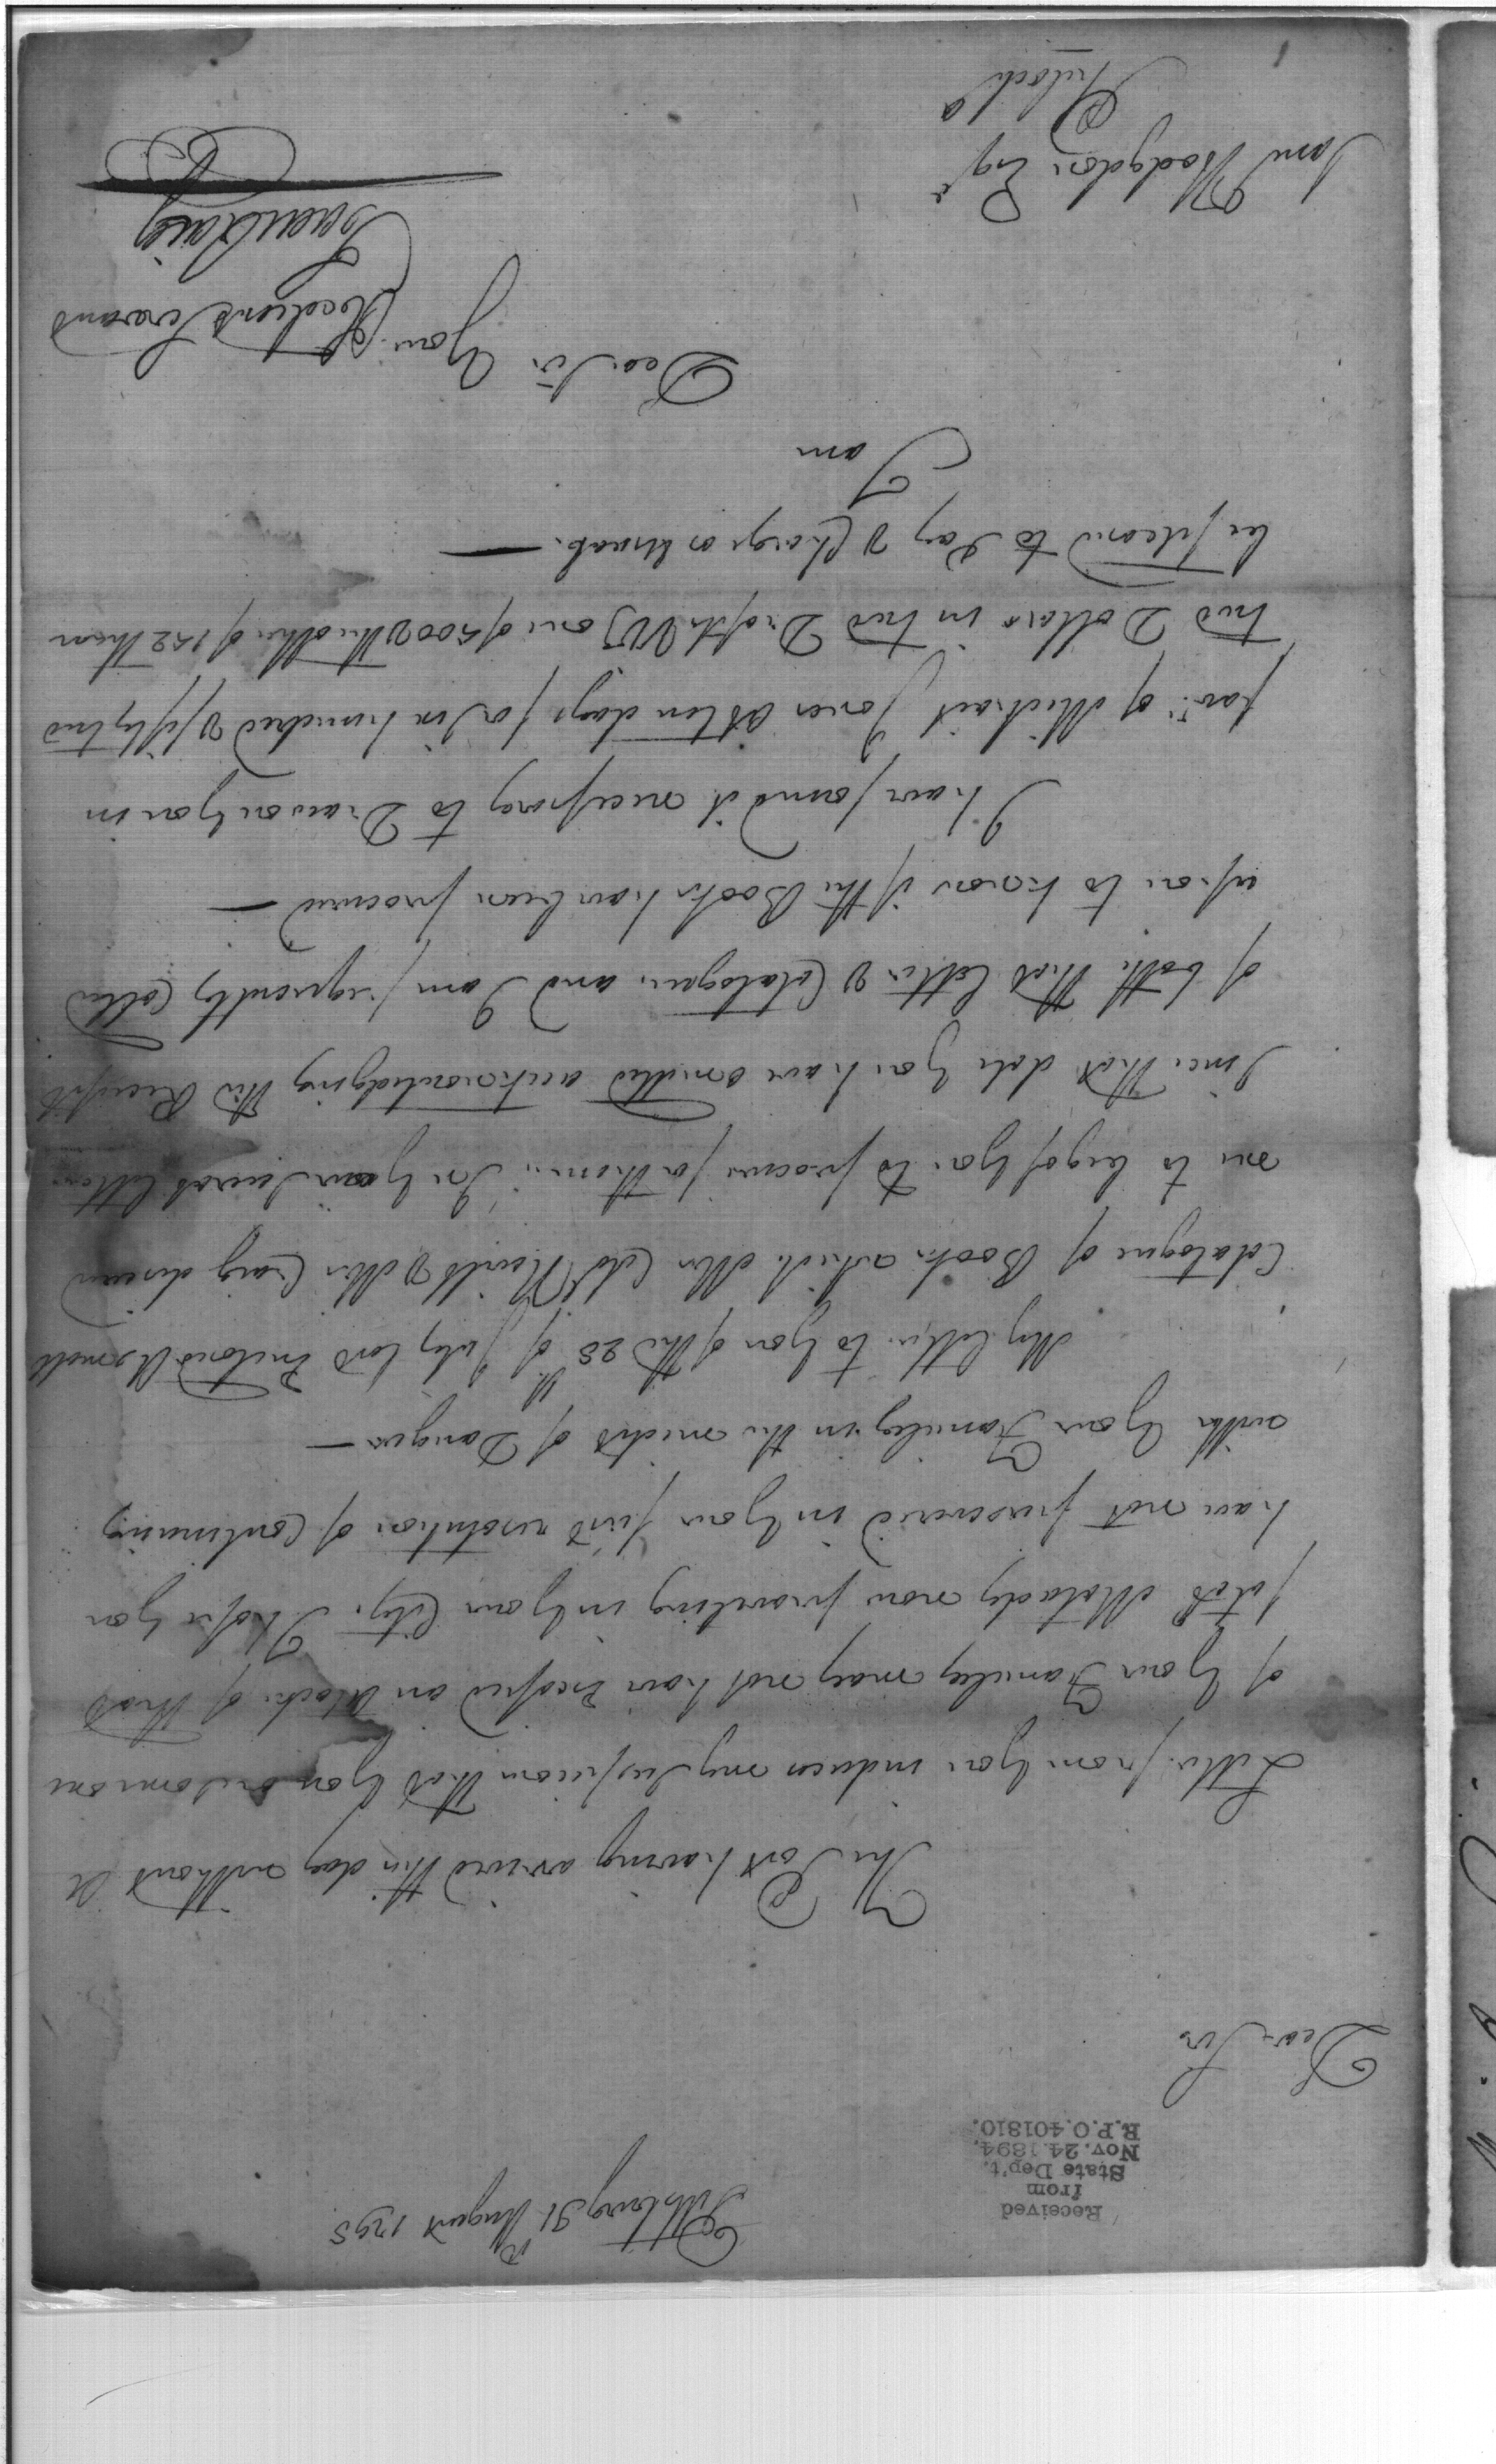 Received
from
State Dep't.
Nov. 24. 1894.
R.P.O. 401810.
Pittsburg 31 August 1798
Dear Sir
The Post having arrived this day without a
Letter from You induces my Suspicion that You or some one
of Your Family may not have Escaped an attack of that
fatal Malady now prevailing in Your City. I hope You
have not persevered in Your first resolution of Continuing
with Your Family in the midst of Danger —
My letter to You of the 28th. of July last Enclosed a small
Catalogue of Books which Mrs Colo Nevill & Mrs Craig desired
me to beg of You to procure for them. In Your Several letters
Since that date You have omitted acknowledging the Receipt
of both that letter & Catalogue and I am frequently Called
upon to know if the Books have been procured —
I have found it necessary to Draw on You in
favr. of Michael Jones at ten days for Six hundred & fifty two
two Dollars in two Drafts Viz one of 500 & the other of 152 them
be pleased to Pay & Charge as Usual. —
I am
Dear Sir Your Obedient Servant
Isaac Craig
Saml Hodgdon Esqr
Philada